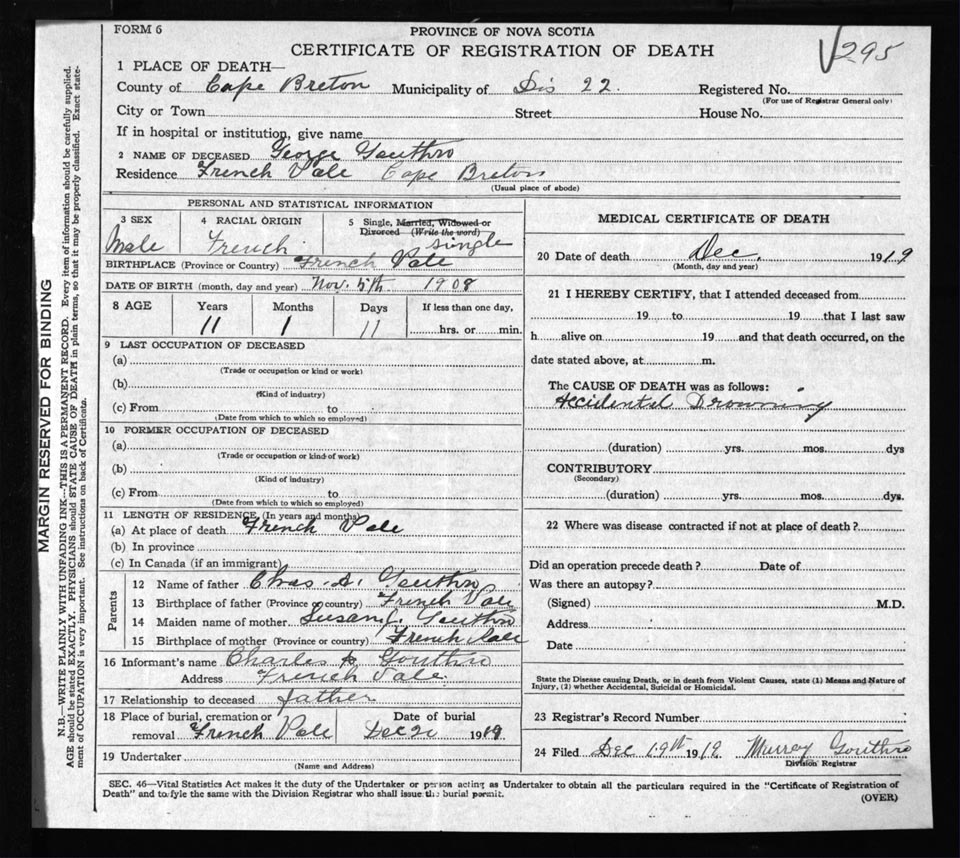 FORM 6
PROVINCE OF NOVA SCOTIA
CERTIFICATE OF REGISTRATION OF DEATH
295
1 PLACE OF DEATH—
County of Cape Breton Municipality of Dis 22. Registered No.
(For use of Registrar General only)
City or Town Street House No.
If in hospital or institution, give name
2 NAME OF DECEASED George Gouthro
Residence French Vale Cape Breton
(Usual place of abode)
PERSONAL AND STATISTICAL INFORMATION
3 SEX 4 RACIAL ORIGIN 5 Single, Married, Widowed or
Divorced (Write the word)
Male French single
BIRTHPLACE (Province or Country) French Vale
DATE OF BIRTH (month, day and year) Nov. 5th. 1908
8 AGE Years Months Days If less than one day,
11 1 11 hrs. or min.
9 LAST OCCUPATION OF DECEASED
(a)
(Trade or occupation or kind or work)
(b)
(Kind of industry)
(c) From to
(Date from which to which so employed)
10 FORMER OCCUPATION OF DECEASED
(a)
(Trade or occupation or kind of work)
(b)
(Kind of industry)
(c) From to
(Date from which to which so employed)
11 LENGTH OF RESIDENCE (In years and months)
(a) At place of death French Vale
(b) In province
(c) In Canada (if an immigrant)
Parents
12 Name of father Chas. A. Gouthro
13 Birthplace of father (Province or country) French Vale
14 Maiden name of mother Susan Gouthro
15 Birthplace of mother (Province or country) French Vale
16 Informant's name Charles Gouthro
Address French Vale.
17 Relationship to deceased father
18 Place of burial, cremation or Date of burial
removal French Vale Dec 20 1919
19 Undertaker
(Name and Address)
MEDICAL CERTIFICATE OF DEATH
20 Date of death Dec. 1919
(Month, day and year)
21 I HEREBY CERTIFY, that I attended deceased from
19 to 19 that I last saw
h alive on 19 and that death occurred, on the
date stated above, at m.
The CAUSE OF DEATH was as follows:
Accidental Drowning
(duration) yrs. mos. dys
CONTRIBUTORY
(Secondary)
(duration) yrs. mos. dys.
22 Where was disease contracted if not at place of death?
Did an operation precede death? Date of
Was there an autopsy?
(Signed) M.D.
Address
Date
State the Disease causing Death, or in death from Violent Causes, state (1) Means and Nature of
Injury, (2) whether Accidental, Suicidal or Homicidal.
23 Registrar's Record Number
24 Filed Dec 19th 1919. Murray Gouthro
Division Registrar
SEC. 46—Vital Statistics Act makes it the duty of the Undertaker or person acting as Undertaker to obtain all the particulars required in the "Certificate of Registration of
Death" and to fyle the same with the Division Registrar who shall issue the burial permit.
(OVER)
MARGIN RESERVED FOR BINDING
N.B.—WRITE PLAINLY WITH UNFADING INK—THIS IS A PERMANENT RECORD. Every item of information should be carefully supplied.
AGE should be stated EXACTLY. PHYSICIANS should STATE CAUSE OF DEATH in plain terms, so that it may be properly classified. Exact state-
ment of OCCUPATION is very important. See instructions on back of Certificate.